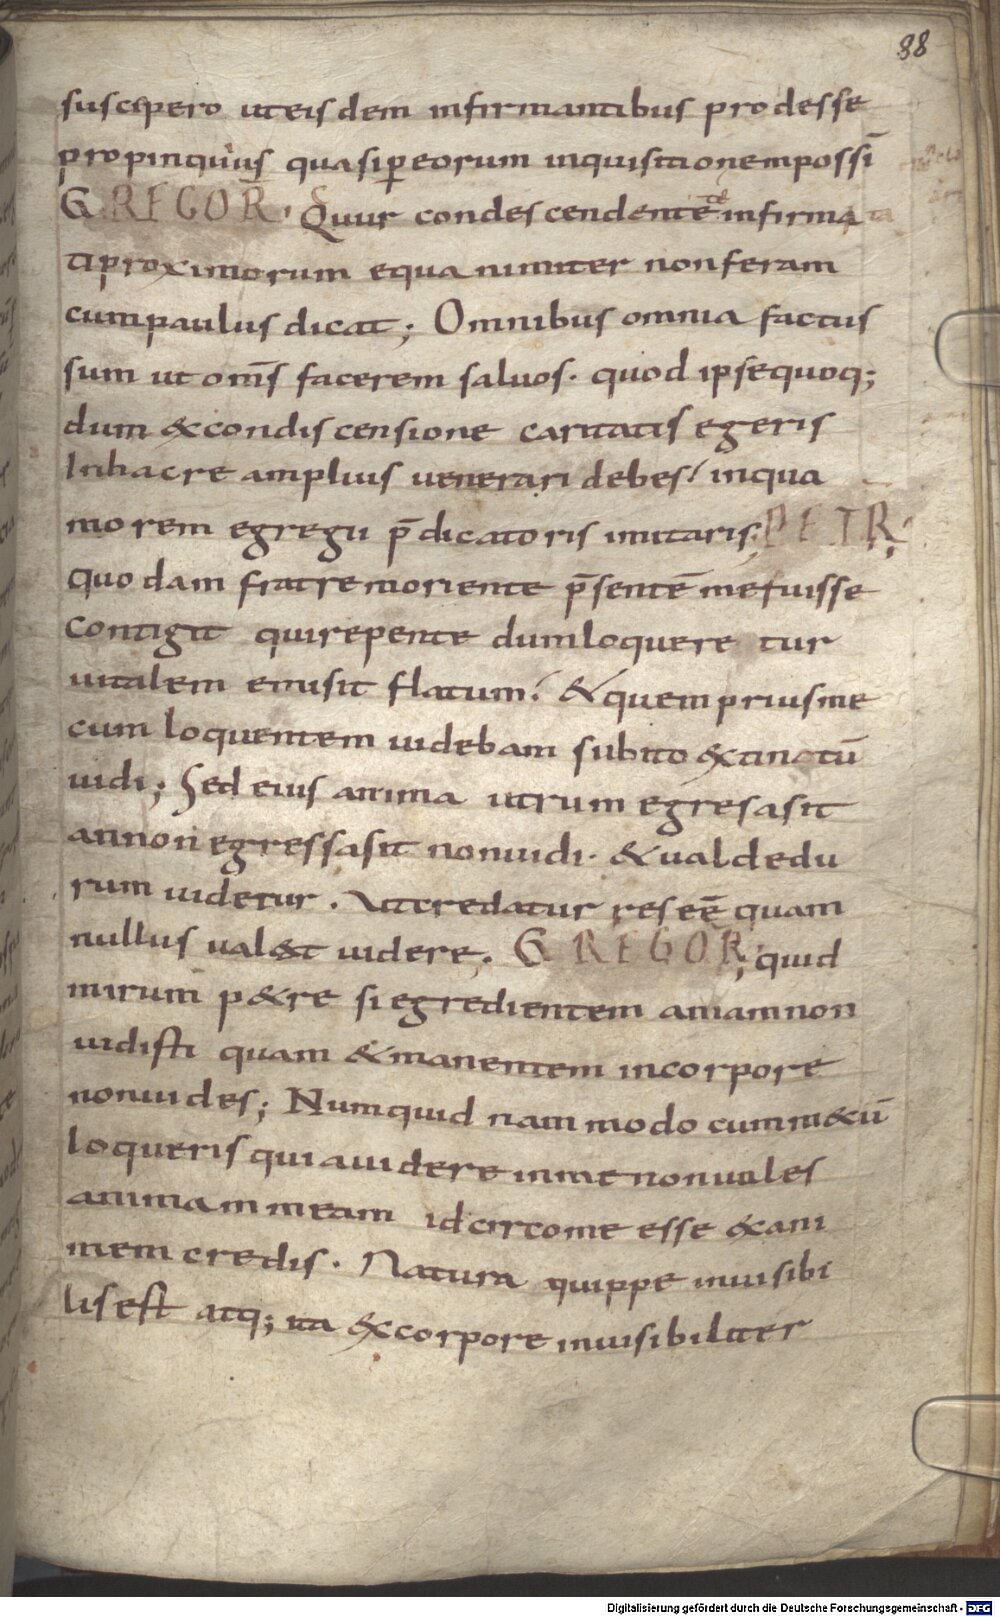 88
suscipero uteisdem infirmantibus prodesse
propinquius quasiꝑeorum inquisitionempossī
GREGOR̄; Quur condescendentē infirmita
tiproximorum equanimiter nonferam
cumpaulus dicat; Omnibus omnia factus
sum ut om̄s facerem saluos. quod ipsequoq;
dum &condiscensione caritatis egeris
Inhacre amplius uenerari debes; inqua
morem egregii p̄dicatoris imitaris; PETR;
quodam fratremoriente p̄sentē mefuisse
contigit quirepente dumloqueretur
uitalem emisit flatum; &quem priusme
cum loquentem uidebam subito extinctū
uidi; Sed eius anima utrum egresasit
annon egressasit nonuidi. &ualdedu
rum uidetur. Utcredatur reseē quam
nullus ual&t uidere. GREGOR; quid
mirum p&re si egredientem animamnon
uidisti quam &manentem incorpore
nonuides; Numquidnam modo cumm&ū
loqueris quiauidere inme nonuales
animam meam idcircome esse &ani
mem credis. Natura quippe inuisibi
lisest atq; ita &xcorpore inuisibiliter
Digitalisierung gefördert durch die Deutsche Forschungsgemeinschaft - DFG